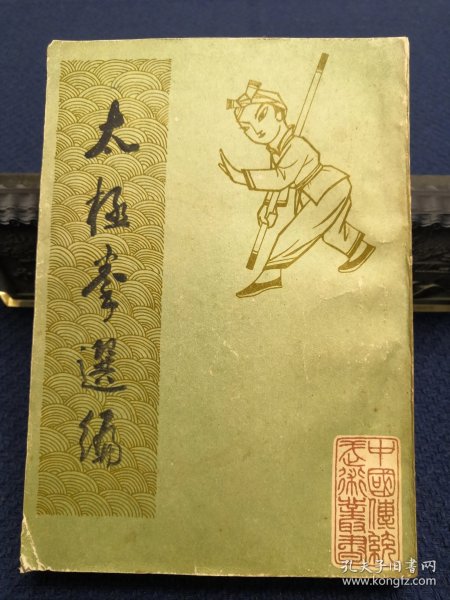 太極拳選編
中國傳統
武術叢書
孔夫子旧书网
www.kongfz.com